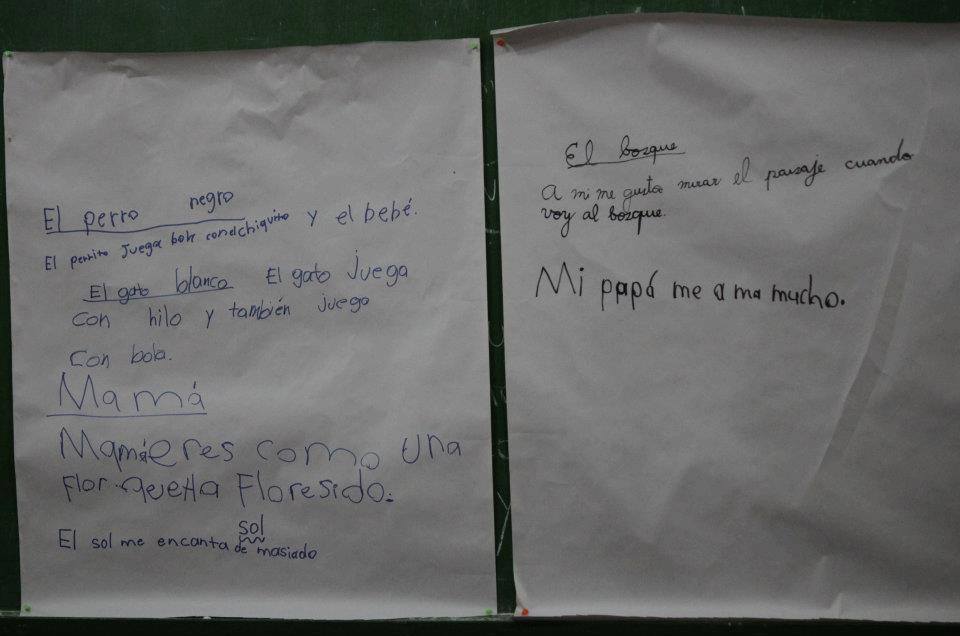 El perro negro
El perrito Juega bola conelchiquito y el bebé.
El gato blanco El gato Juega
con hilo y también juego
con bola.
Mamá
Mamá eres como una
Flor queHa Floresido.
sol
El sol me encanta de masiado
El bozque
A mi me gusta mirar el paisaje cuando
voy al bozque.
Mi papá me a ma mucho.